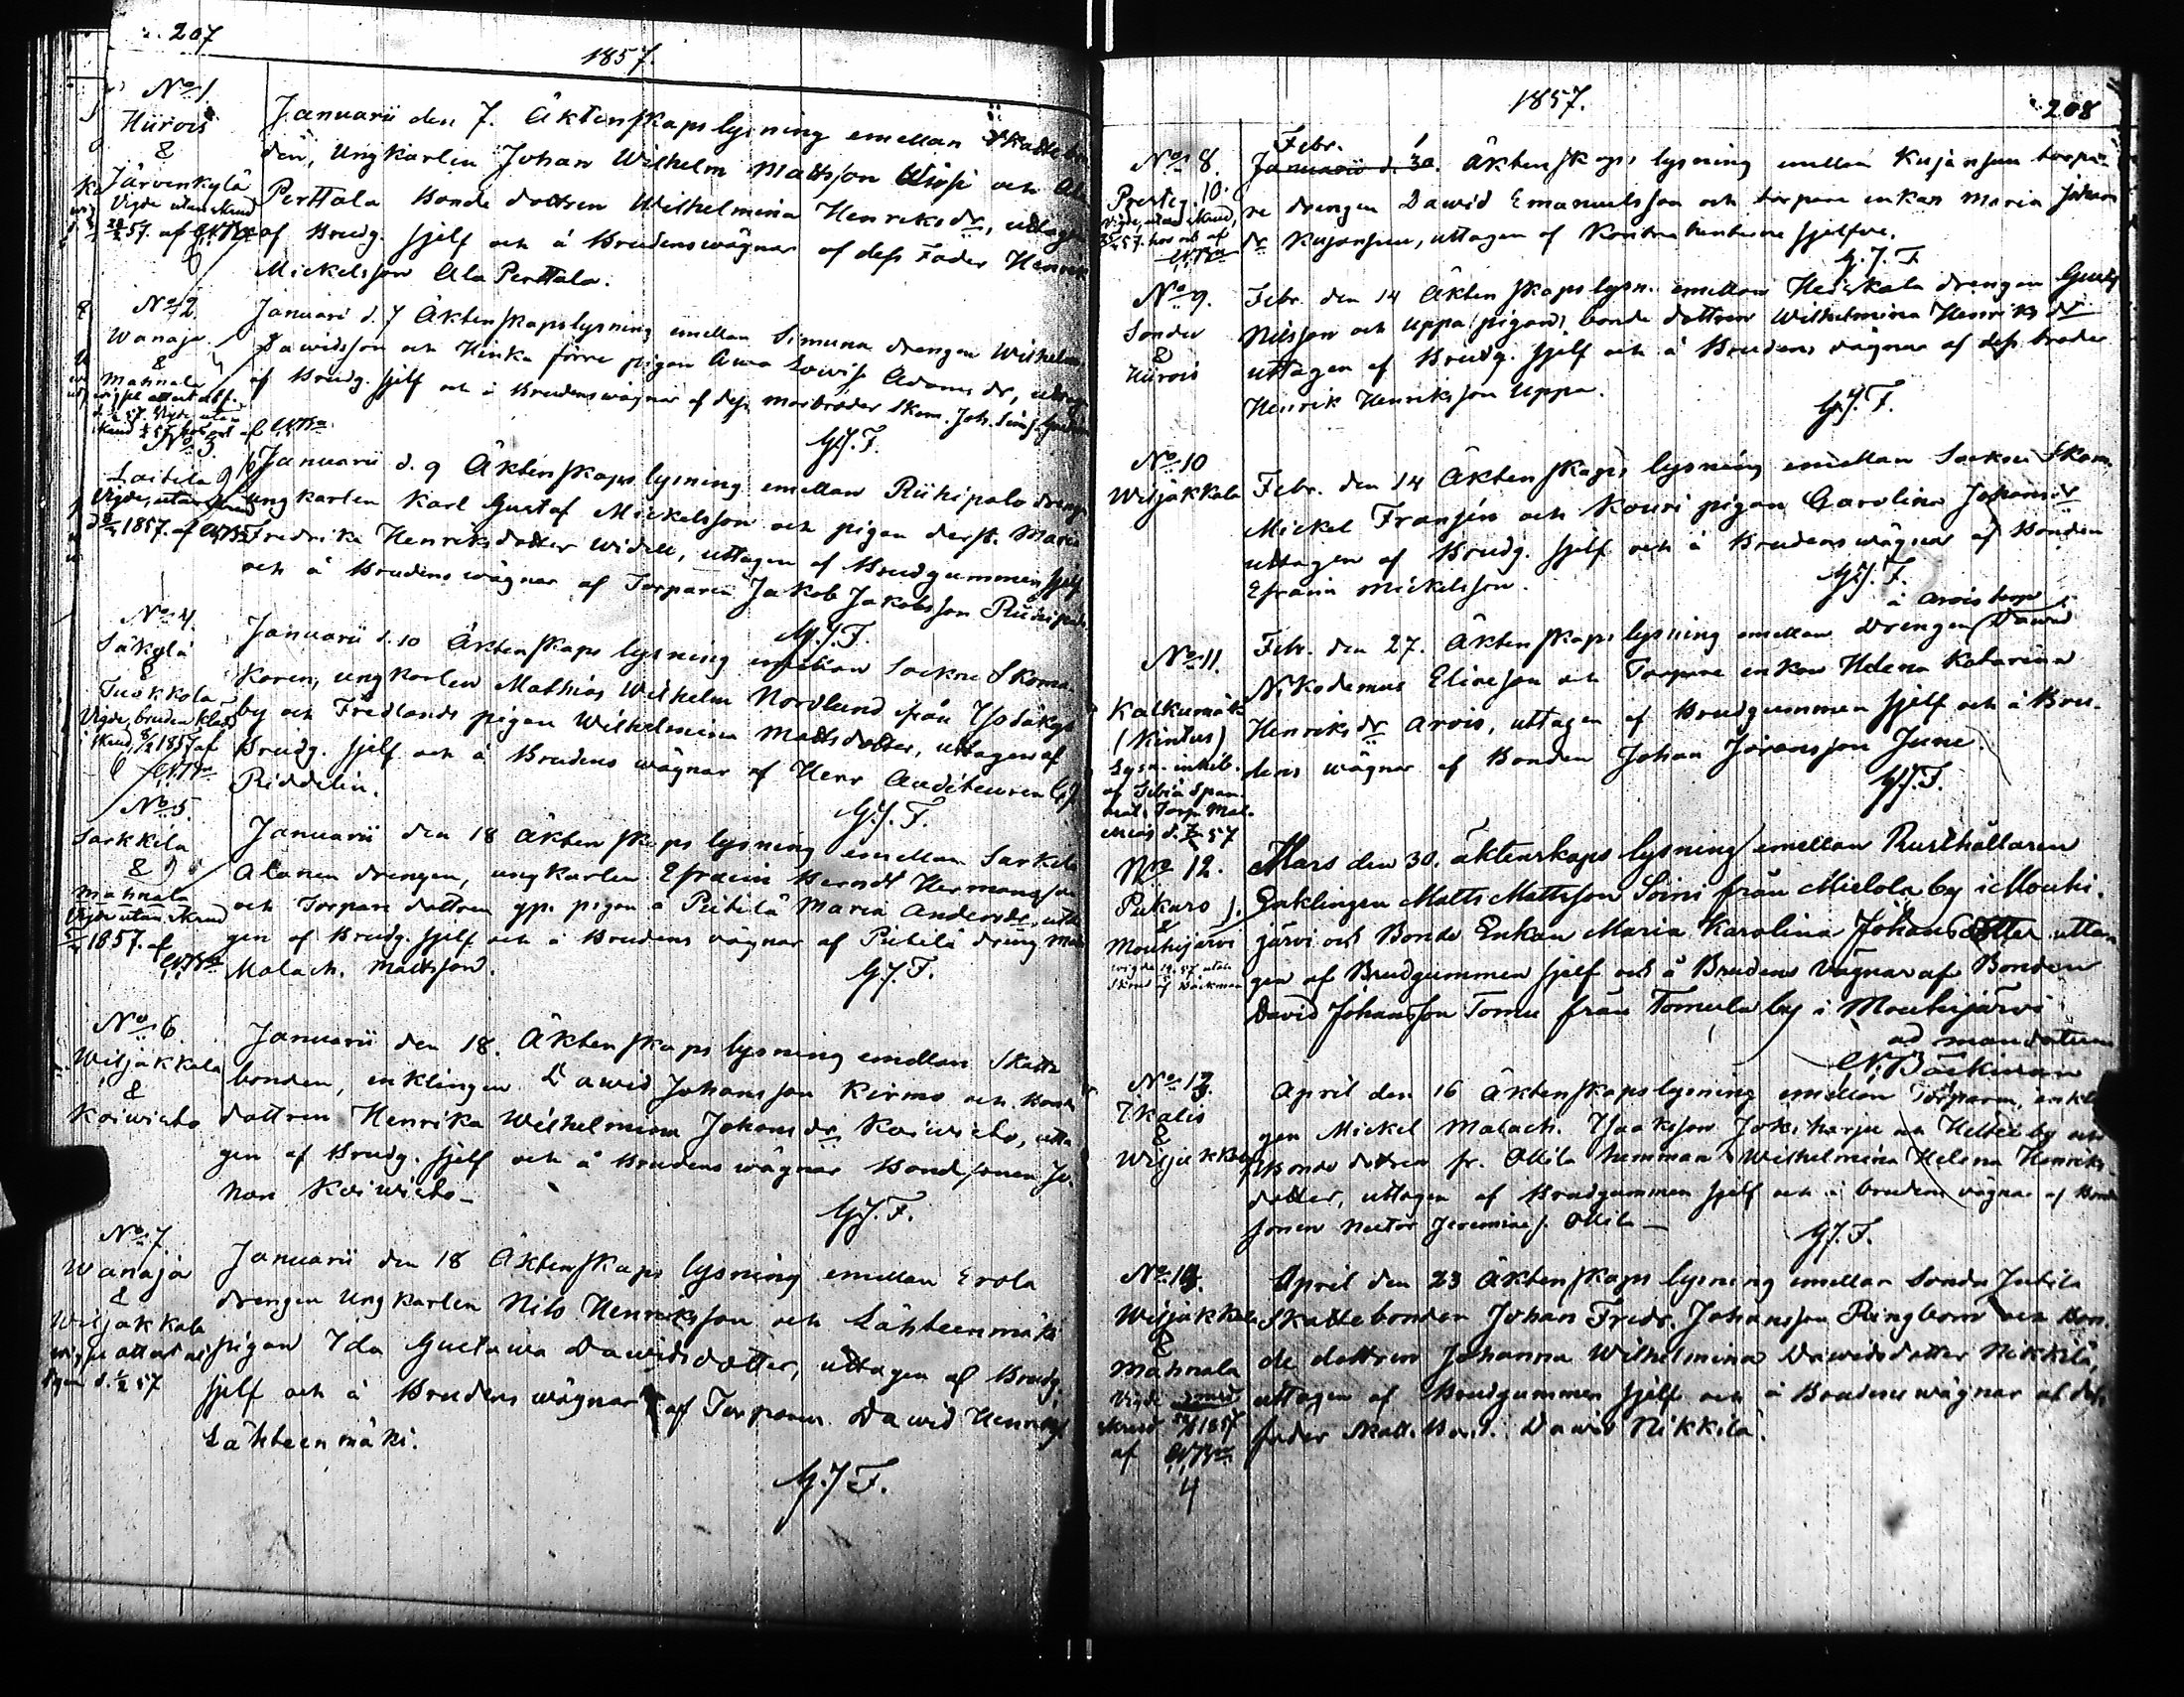 207
1857.
No 1.
Hiirois
&
Järvenkylä
Vigde utan skrud
Januarii den 7. Äktenskaps lysning emellan Skattebon
den, Ungkarlen Johan Wilhelm Mattsson och Ala
Perttala Bonde dottren Wilhelmina Henriksdr, uttagen
af Brudg. sjelf och å Brudens wägnar af dess Fader Henrik
Mickelsson Ala Perttala.
No 2.
Wanaja
&
Mahnala
Januari d. 7 Äktenskapslysning emellan Simuna drengen Wilhelm
Dawidsson och Hinka förre pigan Anna Lowisa Adams dr, uttagen
af Brudg. sjelf och å Brudens wägnar af dess morbroder Skom. Joh.
G.J.F.
No 3.
Laitila
Vigde, utan skrud
1857. af
Januarii d. 9 Äktenskaps lysning emellan Riihipalo drengen
ungkarlen Karl Gustaf Mickelsson och pigan derst. Maria
Fredrika Henriksdotter Widell, uttagen af Brudgummen sjelf
och å Brudens wägnar af Torparen Jakob Jakobsson Riihipalo.
G.J.F.
No 4.
Säkylä
&
Tuokkola
Vigde, bruden klädd
i skrud, 1857 af
Januarii d. 10 Äktenskaps lysning emellan Sockne Skoma-
karen, ungkarlen Mathias Wilhelm Nordlund från Isosäkylä
by och Fredlands pigan Wilhelmina Mattsdotter, uttagen af
Brudg. sjelf och å Brudens wägnar af Herr Auditeuren G.J.
Riddelin.
G.J.F.
No 5.
Sarkkila
&
Mahnala
Vigde utan skrud
1857. af
Januarii den 18 Äktenskaps lysning emellan Sarkila
Alanen drengen, ungkarlen Efraim Berndt Hermansson
och Torpare dottren pigan å Pietilä Maria Andersdr, utta
gen af Brudg. sjelf och å Brudens wägnar af Pietilä dreng
Malach. Mattsson.
G.J.F.
No 6.
Wiljakkala
&
Koiwisto
Januarii den 18. Äktenskaps lysning emellan Skatte
bonden, enklingen Dawid Johansson Kirmo och Bonde
dottren Henrika Wilhelmina Johansdr Koiwisto, utta
gen af Brudg. sjelf och å Brudens wägnar Bondesonen Jo
han Koiwisto —
G.J.F.
No 7.
Wanaja
&
Wiljakkala
Januarii den 18 Äktenskaps lysning emellan Erola
drengen Ungkarlen Nils Henriksson och Lähteenmäki
pigan Ida Gustawa Dawidsdotter, uttagen af Brudg.
sjelf och å Brudens wägnar af Torparen Dawid Henriks
Lähteenmäki.
G.J.F.
1857.
208
No 8.
Presteg. 10.
Febr. 1
Januarii d. 30. Äktenskaps lysning emellan Kujansuu torpa-
re drengen Dawid Emanuelsson och torpare enkan Maria Johans
dr Kujansuu, uttagen af Kontrahenterne sjelfve.
G.J.F
No 9.
Sondu
&
Hiirois
Febr. den 14 Äktenskapslysn. emellan Heiskala drengen Gustaf
Nilsson och Uppa pigan, bonde dottren Wilhelmina Henriks dr
uttagen af Brudg. sjelf och å Brudens vägnar af dess broder
Henrik Henriksson Uppa.
G.J.F.
No 10
Wiljakkala
Febr. den 14 Äktenskaps lysning emellan Sockne Skom.
Mickel Fransén och Kouri pigan Carolina Johansdr
uttagen af Brudg. sjelf och å Brudens wägnar af Bonden
Efraim Mickelsson.
G.J.F.
No 11.
Kalkunmäki
(Kintus)
Lysn. inhib.
d. 57
å Arois torp
Febr. den 27. Äktenskaps lysning emellan Drengen Dawid
Nikodemus Eliasson och Torpare enkan Helena Katarina
Henriks dr Arois, uttagen af Brudgummen sjelf och å Bru-
dens wägnar af Bonden Johan Joransson June.
G.J.F.
No 12.
Pukaro
&
Mouhijärvi
Mars den 30. äktenskaps lysning emellan Rusthållaren
Enklingen Matts Mattsson Soini från Mielola by i Mouhi-
järvi och Bonde Enkan Maria Karolina Johansdotter utta-
gen af Brudgummen sjelf och å Brudens vägnar af Bonden
David Johansson Tomu från Tomula by i Mouhijärvi
ad mandatum
N. Bäckman
No 13.
Ikalis
&
Wiljakkala
April den 16 Äktenskapslysning emellan Torparen, enklin
gen Mickel Malach. Isaksson Jokiharju och Heltti by och
Bonde dottren fr. Ollila hemman Wilhelmina Helena Henriks
dotter, uttagen af Brudgummen sjelf och å brudens vägnar af Bonde
sonen Nestor Jeremias s. Ollila —
G.J.F.
No 14.
Wiljakkala
&
Mahnala
Vigde med
skrud 1857
af
4
April den 23 Äktenskaps lysning emellan Sondu Jutila
Skattebonden Johan Fredr. Johansson Ringbom och Bon-
de dottren Johanna Wilhelmina Dawidsdotter Nikkilä,
uttagen af Brudgummen sjelf och å Brudens wägnar af dess
fader Skatt. Bond. Dawid Nikkilä.